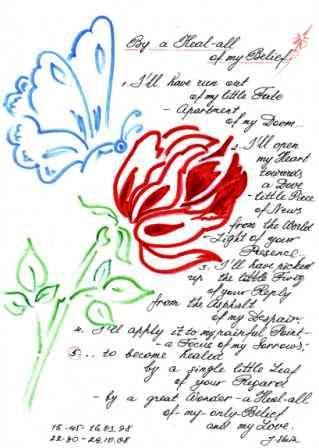 By a Heal-all
of my Belief
1. I'll have run out
of my little Fate
- Apartment
of my Doom...
2. I'll open
my Heart
towards
a Dove
- little Piece
of News
from the World
- Light of your
Presence.
3. I'll have picked
up the little Twig
of your Reply
from the Asphalt
of my Despair,
4. I'll apply it to my painful Point -
- a Focus of my Sorrows,
5... to become healed
by a single little Leaf
of your Regard
- by a great Wonder - a Heal-all
of - my - only Belief
and my Love.
15-45- 16.01.98
22-30 - 24.10.08